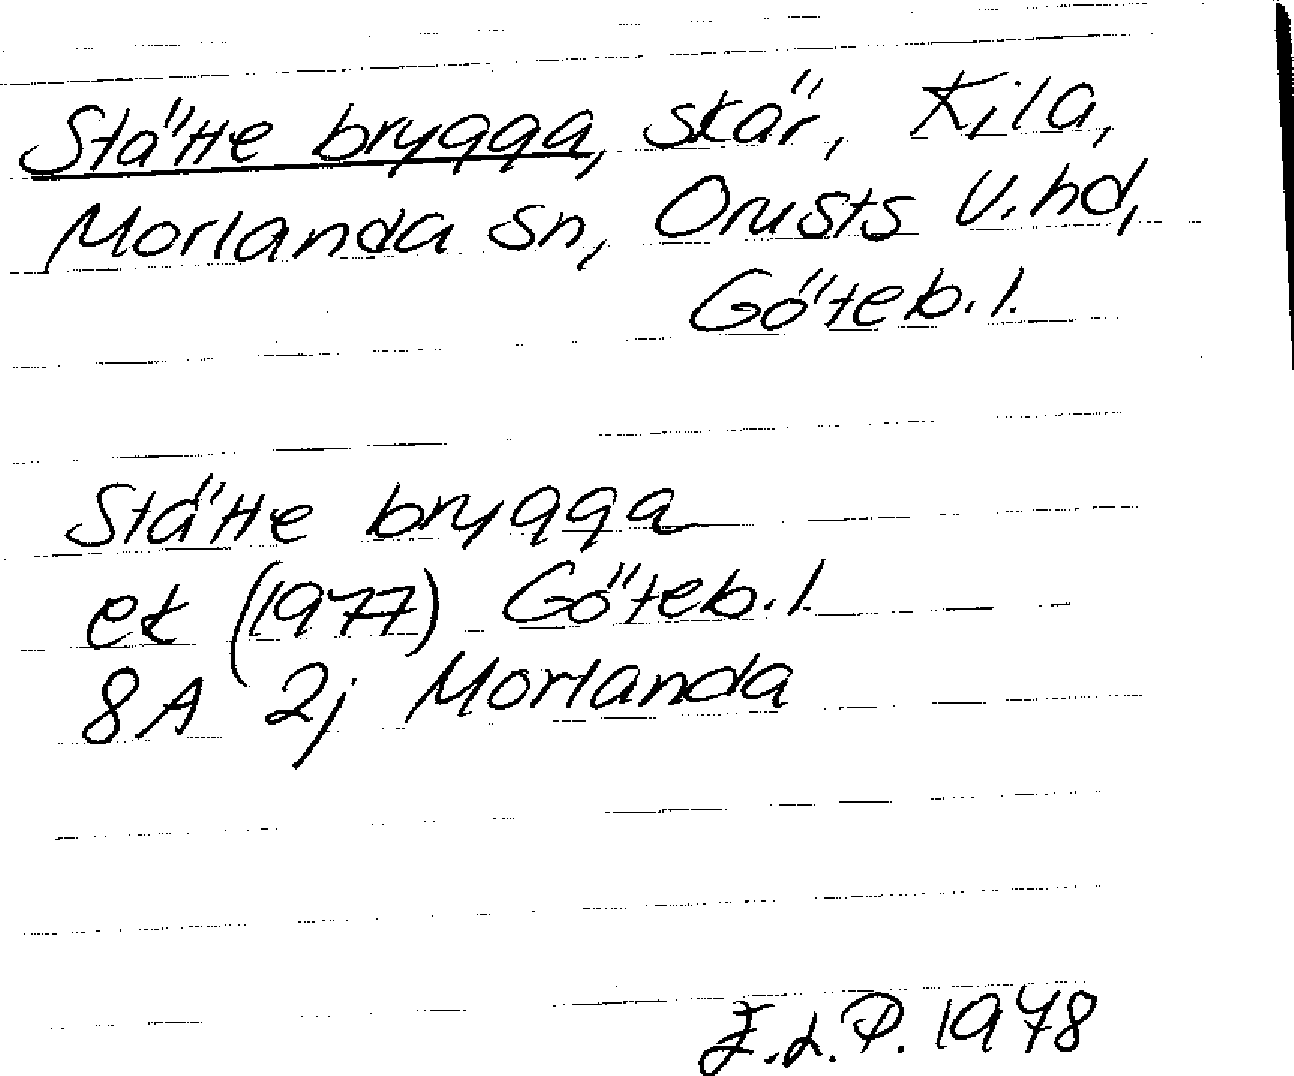 Stätte brygga, skär, Kila,
Morlanda sn, Orusts V. hd,
Göteb. l.
Stätte brygga
ek (1977) Göteb. l.
8A 2j Morlanda
E.L.P. 1978